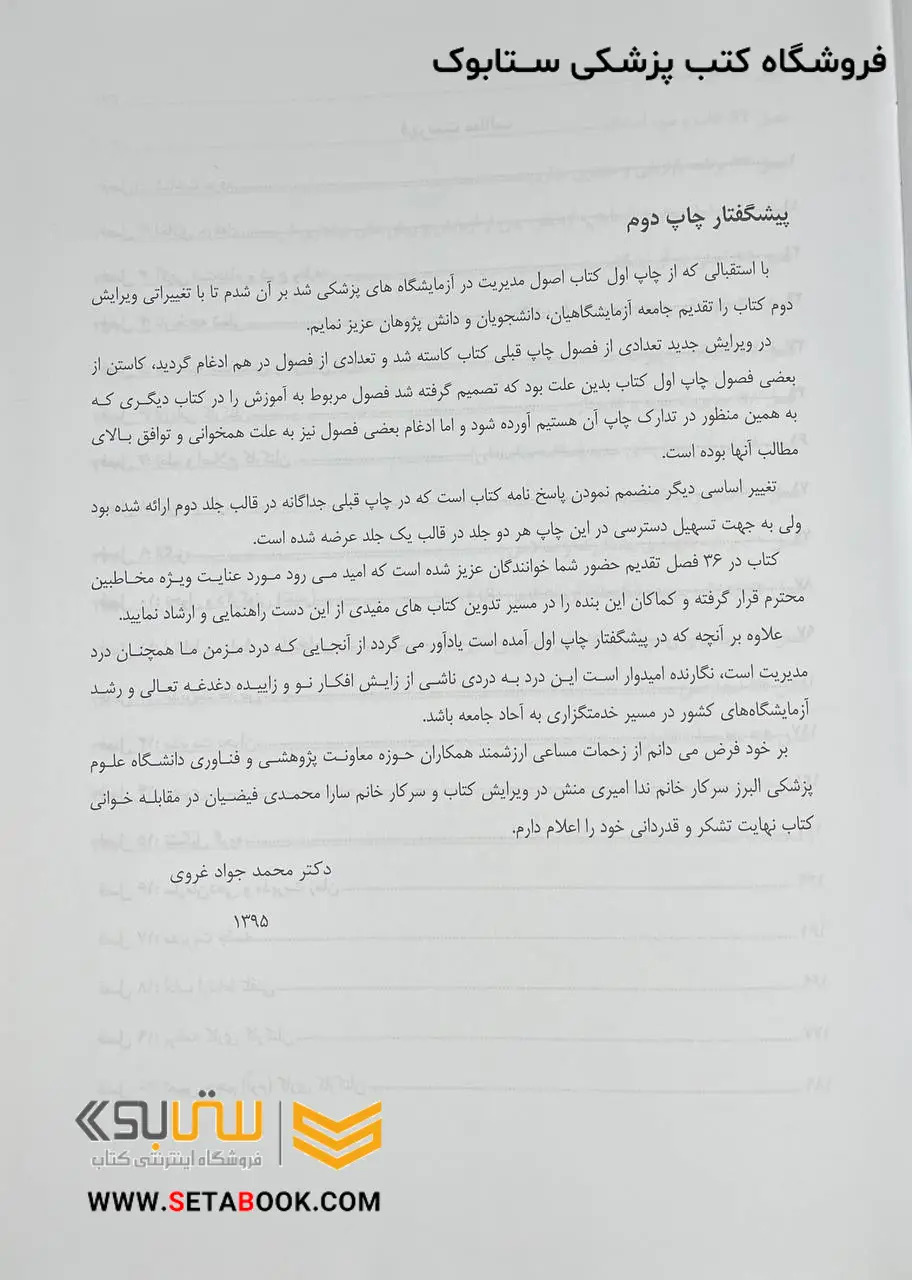 فروشگاه کتب پزشکی ستابوک
پیشگفتار چاپ دوم
با استقبالی که از چاپ اول کتاب اصول مدیریت در آزمایشگاه های پزشکی شد بر آن شدم تا با تغییراتی ویرایش
دوم کتاب را تقدیم جامعه آزمایشگاهیان، دانشجویان و دانش پژوهان عزیز نمایم.
در ویرایش جدید تعدادی از فصول چاپ قبلی کتاب کاسته شد و تعدادی از فصول در هم ادغام گردید، کاستن از
بعضی فصول چاپ اول کتاب بدین علت بود که تصمیم گرفته شد فصول مربوط به آموزش را در کتاب دیگری که
به همین منظور در تدارک چاپ آن هستیم آورده شود و اما ادغام بعضی فصول نیز به علت همخوانی و توافق بالای
مطالب آنها بوده است.
تغییر اساسی دیگر منضمم نمودن پاسخ نامه کتاب است که در چاپ قبلی جداگانه در قالب جلد دوم ارائه شده بود
ولی به جهت تسهیل دسترسی در این چاپ هر دو جلد در قالب یک جلد عرضه شده است.
کتاب در ۳۶ فصل تقدیم حضور شما خوانندگان عزیز شده است که امید می رود مورد عنایت ویژه مخاطبین
محترم قرار گرفته و کماکان این بنده را در مسیر تدوین کتاب های مفیدی از این دست راهنمایی و ارشاد نمایید.
علاوه بر آنچه که در پیشگفتار چاپ اول آمده است یادآور می گردد از آنجایی که درد مزمن ما همچنان درد
مدیریت است، نگارنده امیدوار است این درد به دردی ناشی از زایش افکار نو و زاییده دغدغه تعالی و رشد
آزمایشگاه‌های کشور در مسیر خدمتگزاری به آحاد جامعه باشد.
بر خود فرض می دانم از زحمات مساعی ارزشمند همکاران حوزه معاونت پژوهشی و فناوری دانشگاه علوم
پزشکی البرز سرکار خانم ندا امیری منش در ویرایش کتاب و سرکار خانم سارا محمدی فیضیان در مقابله خوانی
کتاب نهایت تشکر و قدردانی خود را اعلام دارم.
دکتر محمد جواد غروی
۱۳۹۵
ستابوک
فروشگاه اینترنتی کتاب
WWW.SETABOOK.COM